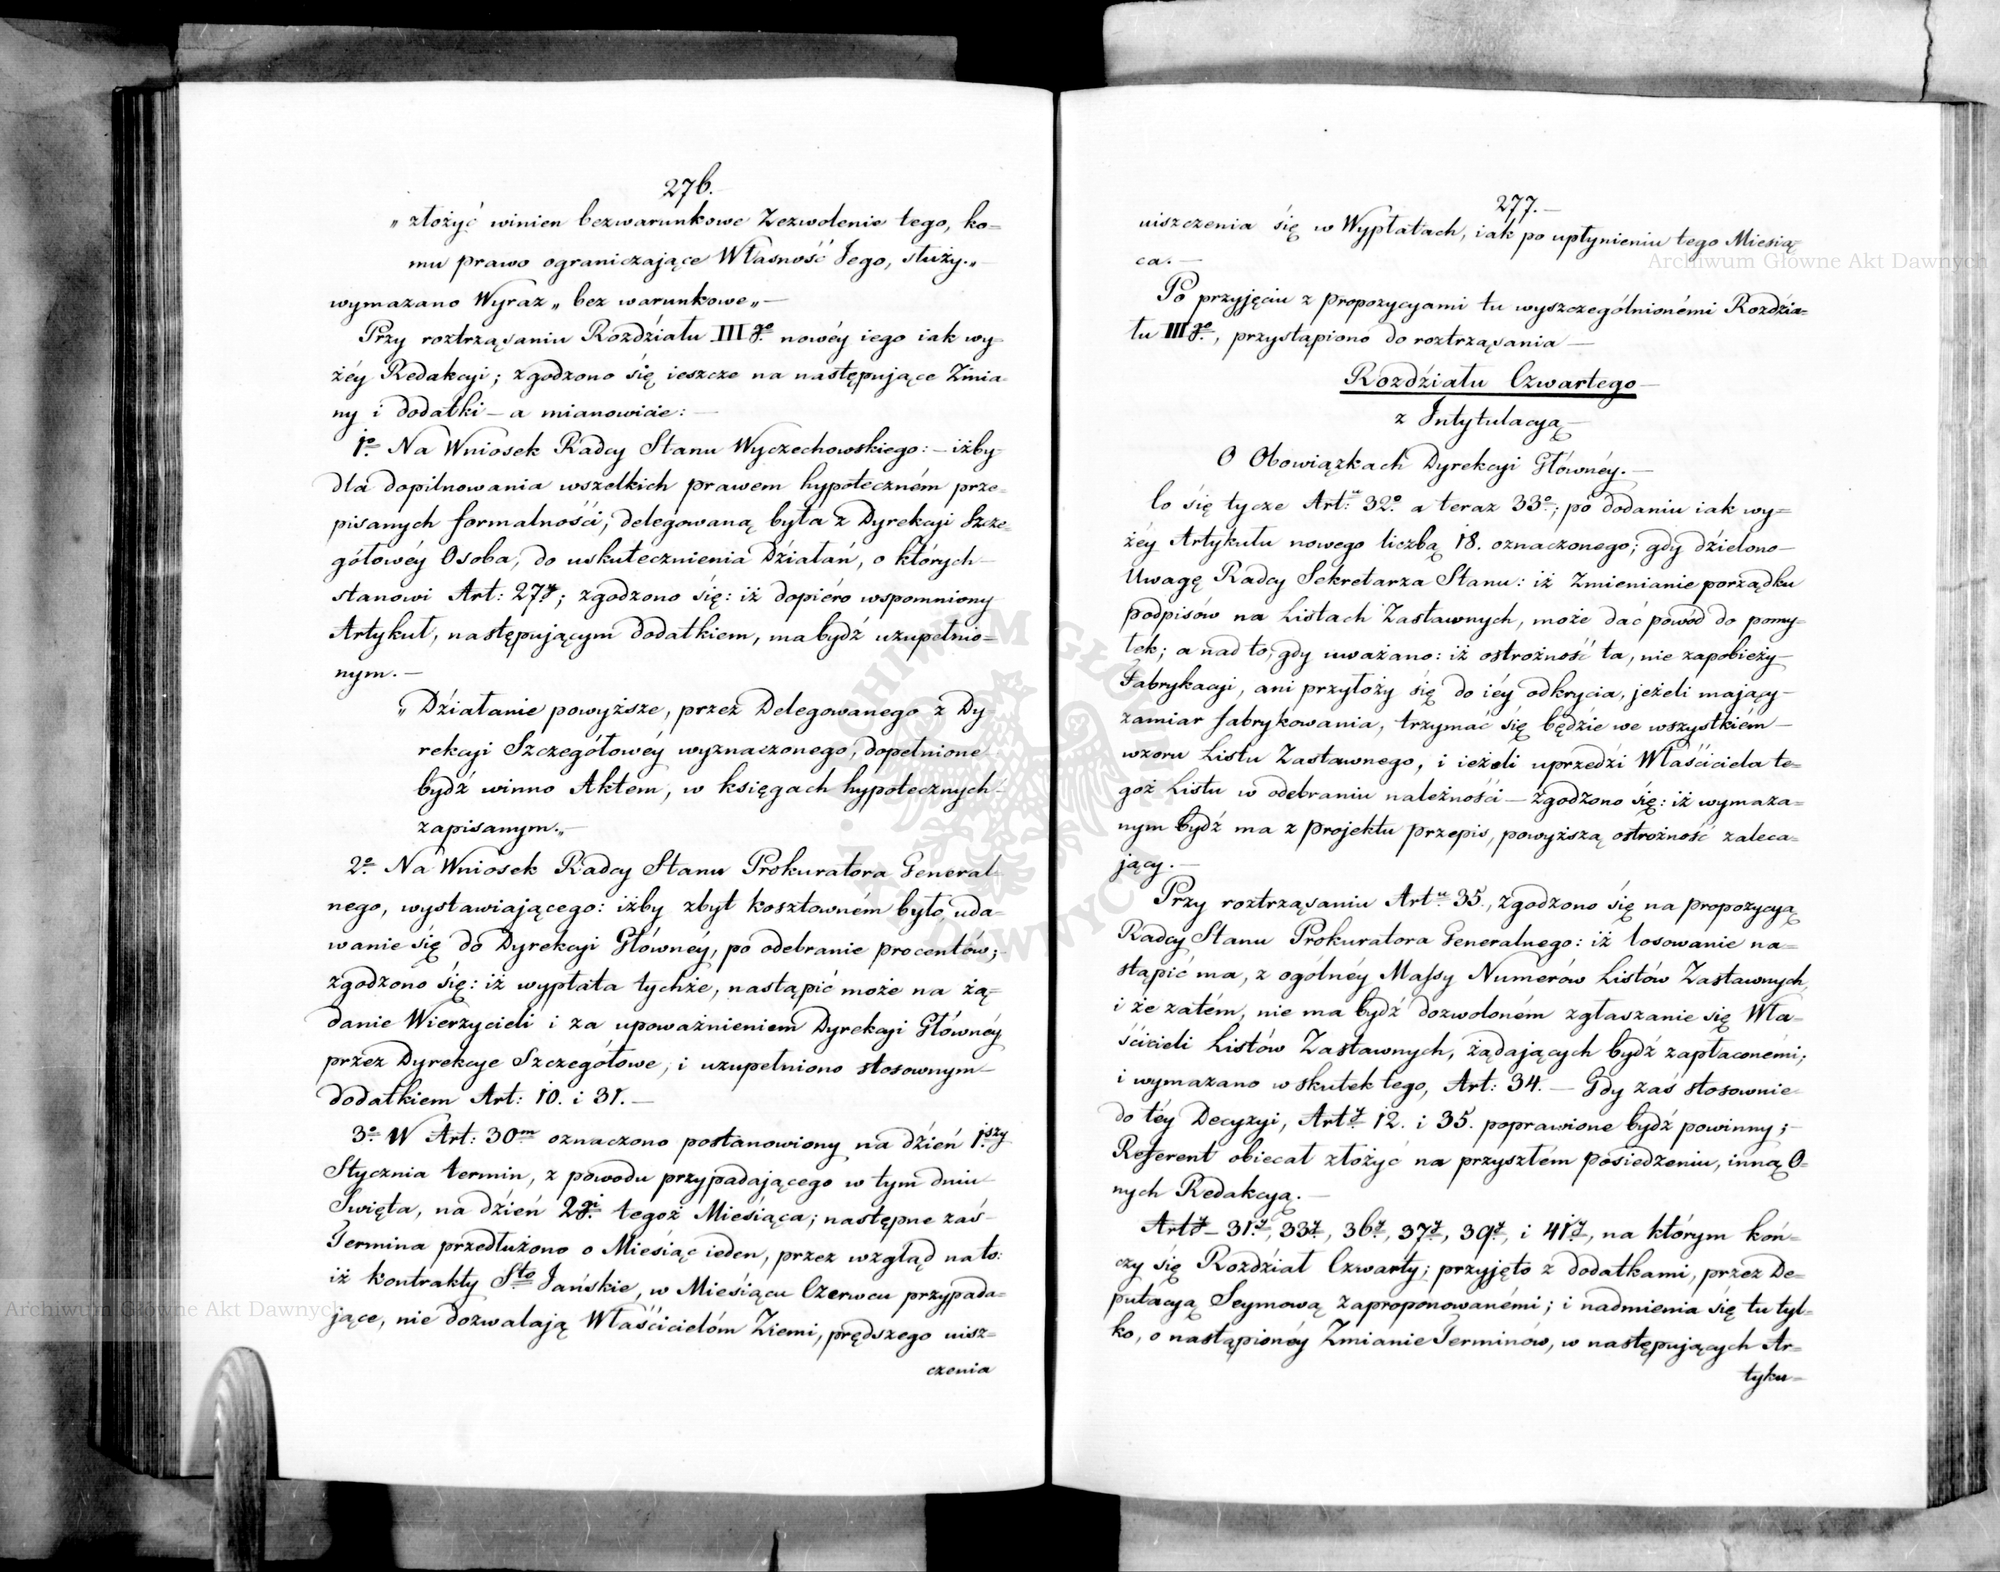 276.
„ złożyć winien bezwarunkowe Zezwolenie tego, ko=
mu prawo ograniczające Własność Jego, służy.„—
wymazano Wyraz „ bez warunkowe „—
Przy roztrząsaniu Rozdziału III go. nowéy iego iak wy=
żéy Redakcyi; zgodzono się ieszcze na następujące Zmia=
ny i dodatki — a mianowicie: —
1o. Na Wniosek Radcy Stanu Wyczechowskiego: — iżby
dla dopilnowania wszelkich prawem hypoteczném prze=
pisanych formalności, delegowaną była z Dyrekcyi Szcze=
gółowéy Osoba, do uskutecznienia Działań, o których —
stanowi Art: 27y; zgodzono się: iż dopiéro wspomniony
Artykuł, następującym dodatkiem, ma bydź uzupełnio=
nym. —
„ Działanie powyższe, przez Delegowanego z Dy
rekcyi Szczegółowéy wyznaczonego, dopełnione
bydź winno Aktem, w księgach hypotecznych —
zapisanym.„—
2o. Na Wniosek Radcy Stanu Prokuratora General=
nego, wystawiającego: iżby zbyt kosztowném było, uda=
wanie się do Dyrekcyi Głównéy, po odebranie procentów; —
zgodzono się: iż wypłata tychże, nastąpić może na żą=
danie Wierzycieli i za upoważnieniem Dyrekcyi Głównéy
przez Dyrekcje Szczegółowe, i uzupełniono stosownym —
dodatkiem Art: 10. i 31. —
3o. W Art: 30m oznaczono postanowiony na dzień 1.szy
Stycznia termin, z powodu przypadającego w tym dniu —
Swięta, na dzień 2gi. tegoż Miesiąca; następne zaś —
Termina przedłużono o Miesiąc ieden, przez wzgląd na to:
iż kontrakty Sto Jańskie, w Miesiącu Czerwcu przypada=
jące, nie dozwalają Właścicielóm Ziemi, prędszego uisz=
czenia
277. —
uiszczenia się w Wypłatach, iak po upłynieniu tego Miesią=
ca. —
Po przyjęciu z propozycyami tu wyszczególnionémi Rozdzia=
łu III go., przystąpiono do roztrząsania —
Rozdziału Czwartego —
z Intytulacyą —
O Obowiązkach Dyrekcyi Głównéy. —
Co się tycze Art:u 32o. a teraz 33o.; po dodaniu iak wy=
żéy Artykułu nowego liczbą 18. oznaczonego; gdy dzielono —
Uwagę Radcy Sekretarza Stanu: iż Zmienianie porządku
podpisów na Listach Zastawnych, może dać powód do pomy=
łek; a nad to, gdy uważano: iż ostrożność ta, nie zapobieży —
Fabrykacyi, ani przyłoży się do iéy odkrycia, jeżeli mający —
zamiar fabrykowania, trzymać się będzie we wszystkiém —
wzoru Listu Zastawnego, i ieżeli uprzedzi Właściciela te=
goż Listu w odebraniu należności — zgodzono się: iż wymaza=
nym bydź ma z projektu przepis, powyższą ostrożność zaleca=
jący. —
Przy roztrząsaniu Art:u 35., zgodzono się na propozycyą
Radcy Stanu Prokuratora Generalnego: iż losowanie na=
stąpić ma, z ogólnéy Massy Numerów Listów Zastawnych,
i że zatém, nie ma bydź dozwoloném zgłaszanie się Wła=
ścicieli Listów Zastawnych, żądających bydź zapłaconémi;
i wymazano w skutek tego, Art: 34. — Gdy zaś stosownie
do téy Decyzyi, Arty. 12. i 35. poprawione bydź powinny; —
Referent obiecał złożyć na przyszłém posiedzeniu, inną O=
nych Redakcyą. —
Arty — 31y, 33y, 36y, 37y, 39y, i 41y, na którym koń=
czy się Rozdział Czwarty; przyjęto z dodatkami, przez De=
putacyą Seymową zaproponowanémi; i nadmienia się tu tyl=
ko, o nastąpionéy Zmianie Terminów, w następujących Ar=
tyku=
Archiwum Główne Akt Dawnych
Archiwum Główne Akt Dawnych
ARCHIWUM GŁÓWNE AKT DAWNYCH